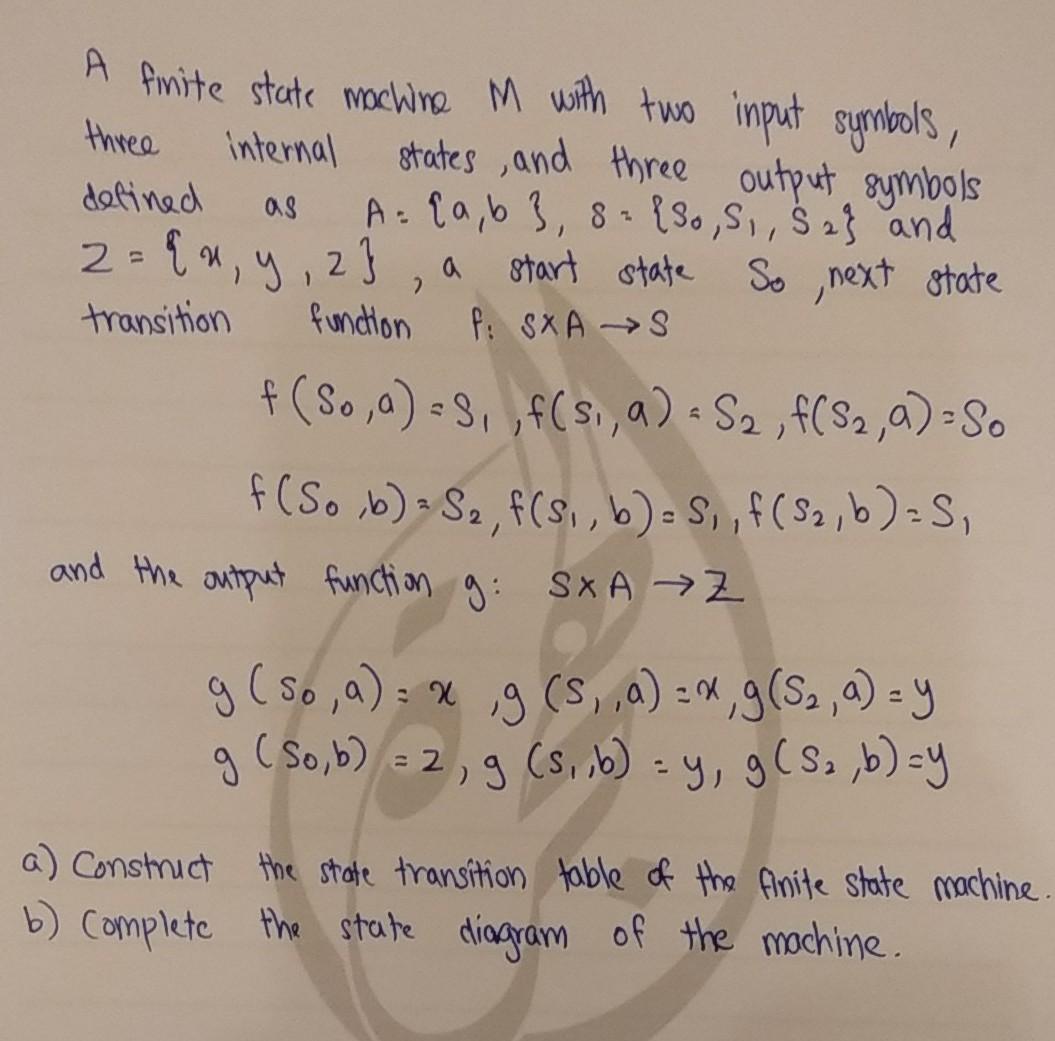 A finite state machine M with two input symbols,
three internal states, and three output symbols
defined as A = {a, b}, S = {S₀, S₁, S₂} and
Z = {x, y, z}, a start state S₀, next state
transition function f: S×A → S
f(S₀,a) = S₁, f(S₁,a) = S₂, f(S₂,a) = S₀
f(S₀,b) = S₂, f(S₁,b) = S₁, f(S₂,b) = S₁
and the output function g: S×A → Z
g(S₀,a) = x, g(S₁,a) = x, g(S₂,a) = y
g(S₀,b) = z, g(S₁,b) = y, g(S₂,b) = y
a) Construct the state transition table of the finite state machine.
b) Complete the state diagram of the machine.